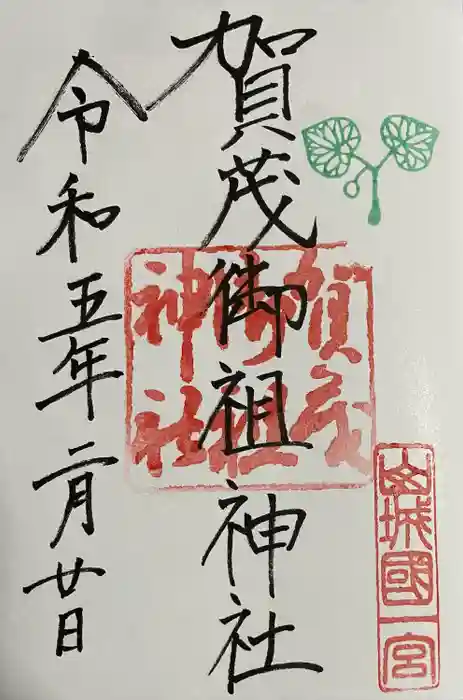 山城國一宮
賀茂御祖神社
賀茂御祖神社
令和五年二月廿日